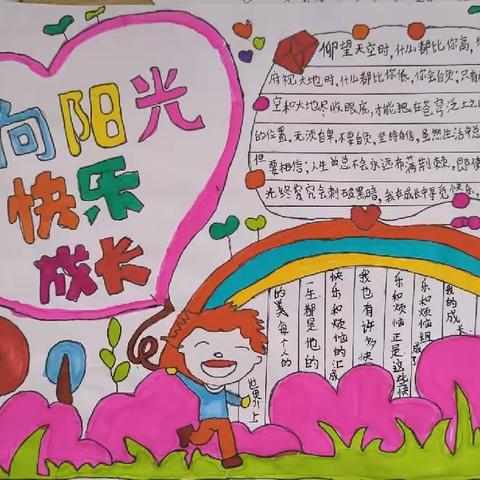 向阳光
快乐
成长
仰望天空时,什么都比你高,
府视大地时,什么都比你低,你会自负;只有
空和大地尽收眼底,才能把在苍穹泛土之
的位置。无须自卑,不要自负,坚持自信,虽然生活中总
但要相信;人生的总不会永远布满荆棘,即使
光终究究会刺破黑暗,我在成长中寻觅快乐,
我的成长
乐和烦恼组成了
乐和烦恼正是这些快
我也有许多快
快乐和烦恼的汇成
一生都是他的
的美每个人的
世界上